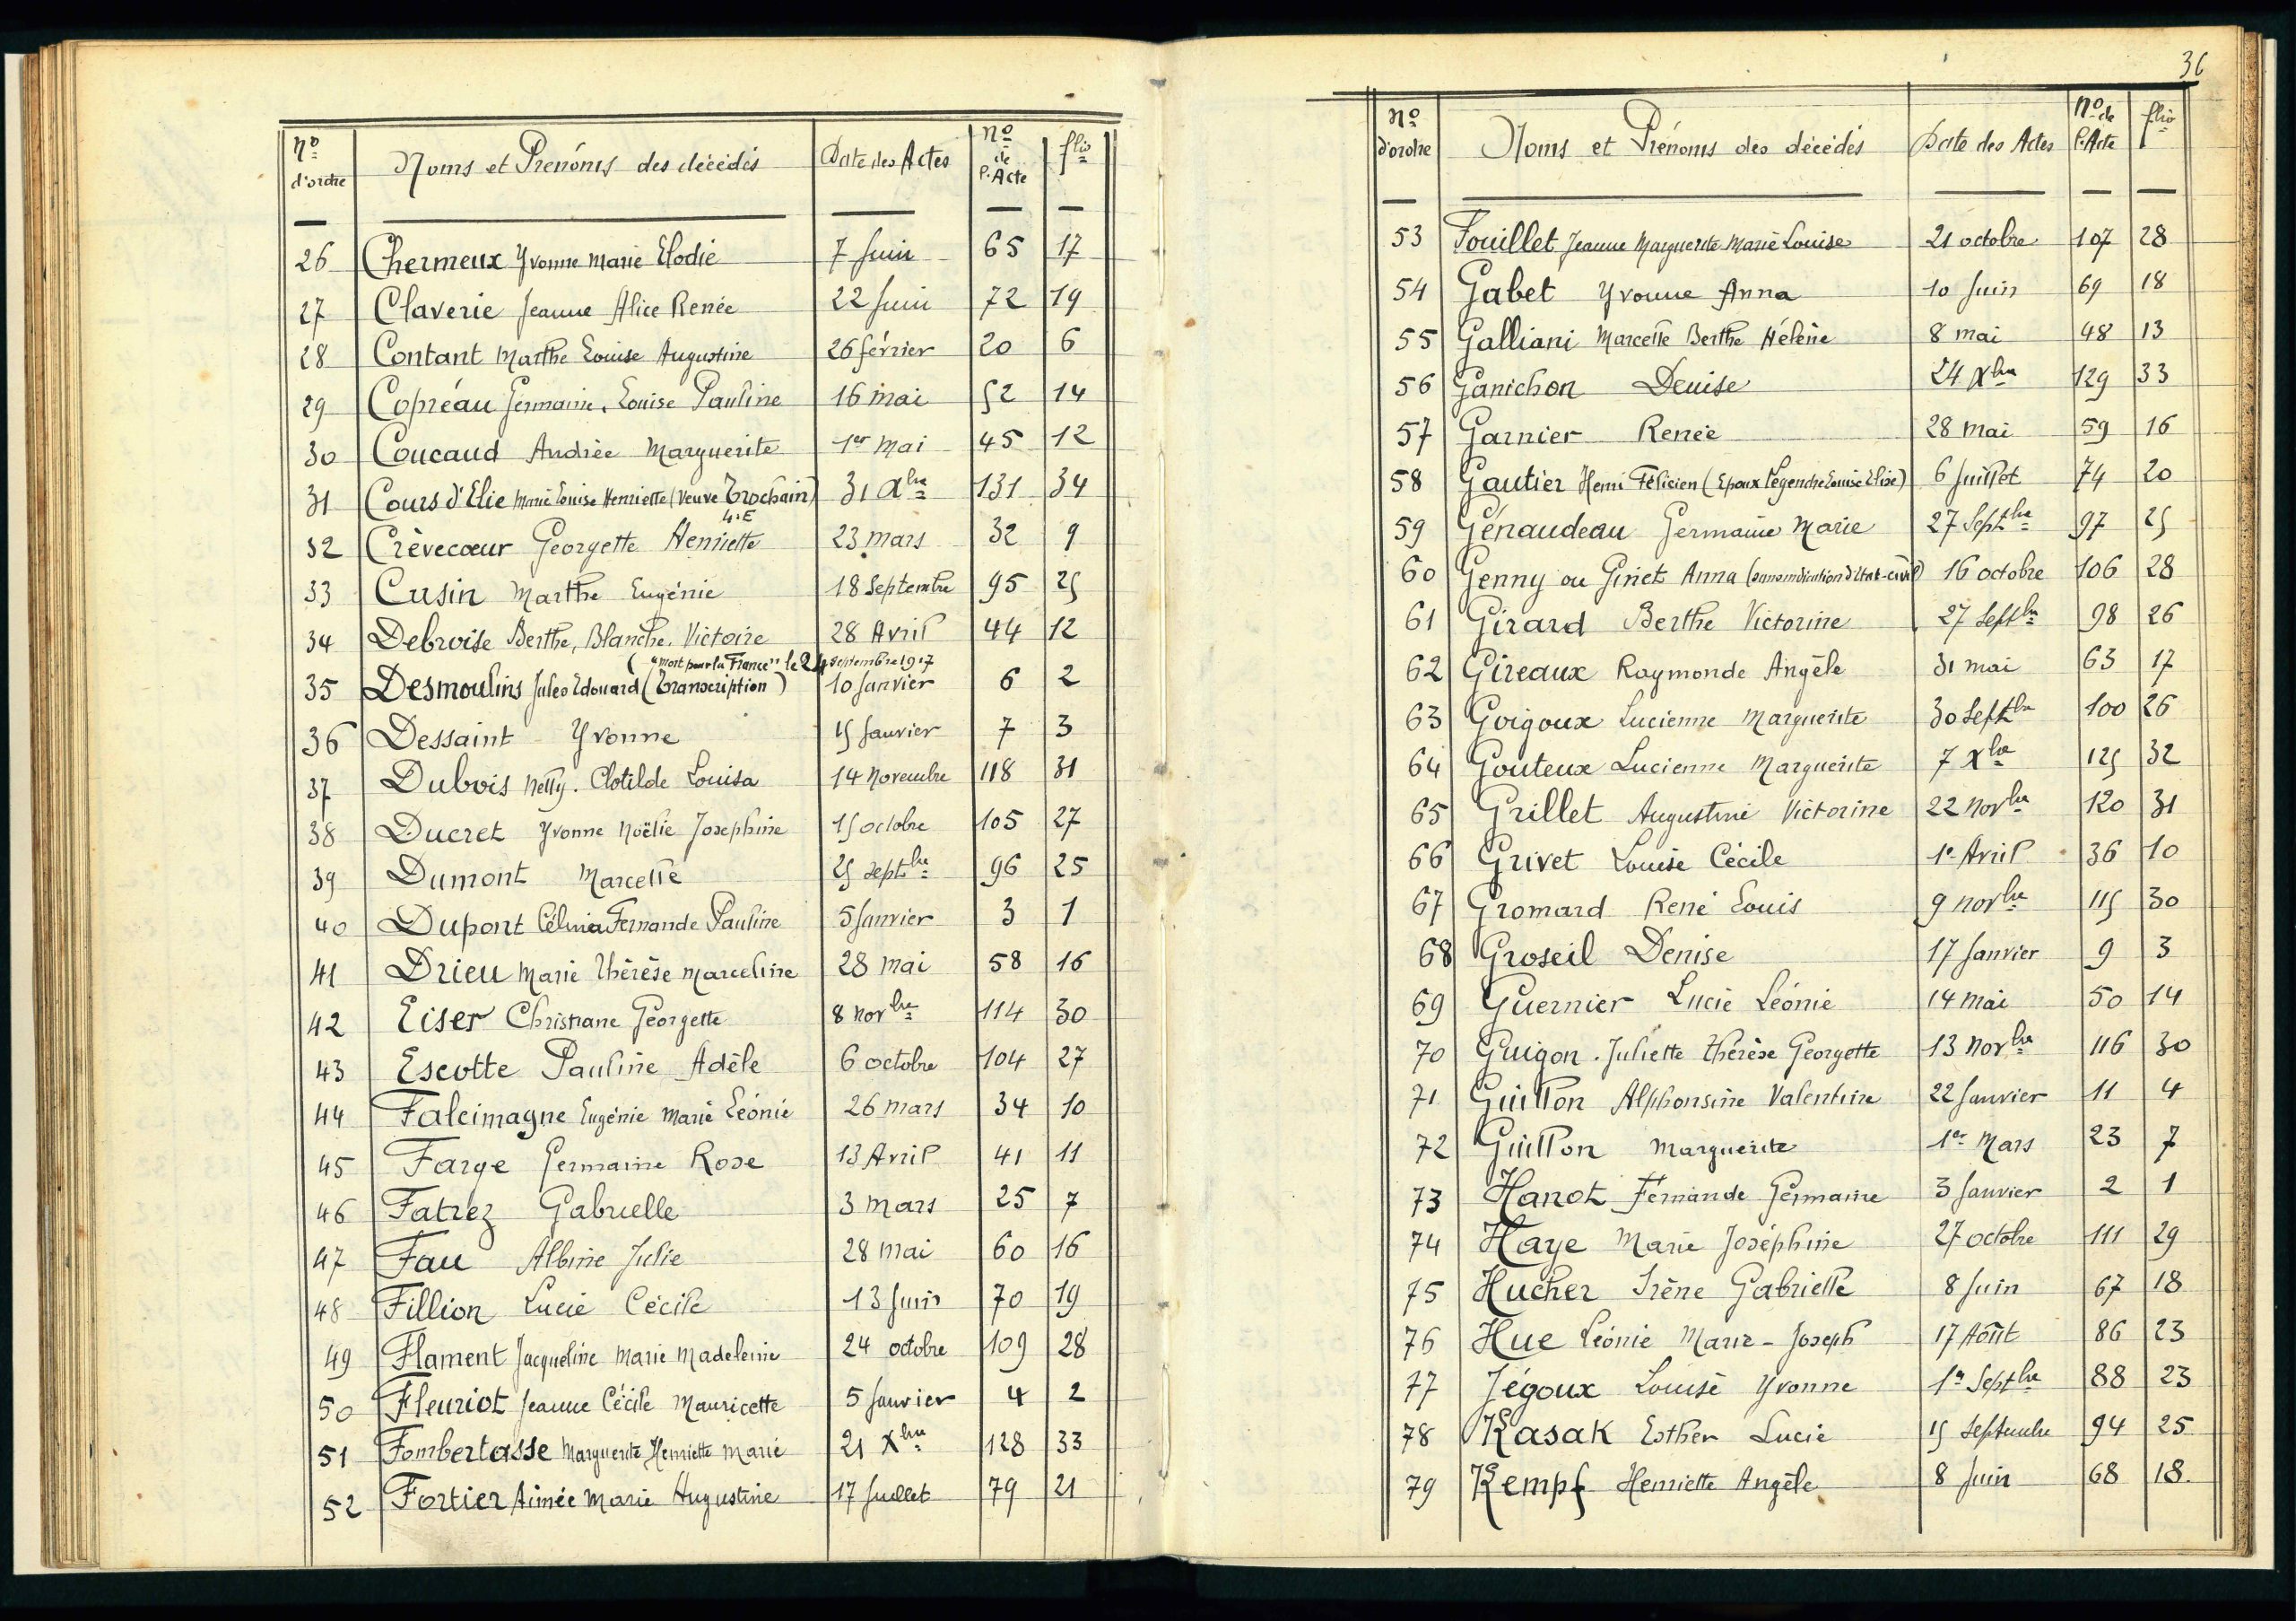 Nº d'ordre Noms et Prénoms des décédés Date des Actes Nº de l'Acte flio
26 Chermeux Yvonne Marie Elodie 7 Juin 65 17
27 Claverie Jeanne Alice Renée 22 Juin 72 19
28 Contant Marthe Louise Augustine 26 février 20 6
29 Copréau Germaine, Louise Pauline 16 mai 52 14
30 Coucaud Andrée Marguerite 1er Mai 45 12
31 Cours d'Elie Marie Louise Henriette (Veuve Trochain) 31 Xbre 131 34
L.E
32 Crèvecœur Georgette Henriette 23 mars 32 9
33 Cusin Marthe Eugénie 18 Septembre 95 25
34 Debroise Berthe, Blanche, Victoire 28 Avril 44 12
("mort pour la France" le 24 septembre 1917
35 Desmoulins Jules Edouard (Transcription) 10 Janvier 6 2
36 Dessaint Yvonne 15 Janvier 7 3
37 Dubois Nelly. Clotilde Louisa 14 Novembre 118 31
38 Ducret Yvonne Noëlie Josephine 15 octobre 105 27
39 Dumont Marcelle 25 septbre 96 25
40 Dupont Célina Fernande Pauline 5 Janvier 3 1
41 Drieu Marie Thérèse Marceline 28 mai 58 16
42 Eiser Christiane Georgette 8 Novbre 114 30
43 Escotte Pauline Adèle 6 octobre 104 27
44 Falcimagne Eugénie Marie Léonie 26 mars 34 10
45 Farge Germaine Rose 13 Avril 41 11
46 Fatrez Gabrielle 3 mars 25 7
47 Fau Albine Julie 28 mai 60 16
48 Fillion Lucie Cécile 13 Juin 70 19
49 Flament Jacqueline Marie Madeleine 24 octobre 109 28
50 Fleuriot Jeanne Cécile Mauricette 5 Janvier 4 2
51 Fombertasse Marguerite Henriette Marie 21 Xbre 128 33
52 Fortier Aimée Marie Augustine 17 Juillet 79 21
36
Nº d'ordre Noms et Prénoms des décédés Date des Actes Nº de l'Acte flio
53 Fouillet Jeanne Marguerite Marie Louise 21 octobre 107 28
54 Gabet Yvonne Anna 10 Juin 69 18
55 Galliani Marcelle Berthe Hélène 8 mai 48 13
56 Ganichon Denise 24 Xbre 129 33
57 Garnier Renée 28 mai 59 16
58 Gautier Henri Félicien (Epoux Legendre Louise Elise) 6 Juillet 74 20
59 Génaudeau Germaine Marie 27 Septbre 97 25
60 Genny ou Ginet Anna (sans indication d'état-civil) 16 octobre 106 28
61 Girard Berthe Victorine 27 Septbre 98 26
62 Gireaux Raymonde Angèle 31 mai 63 17
63 Goigoux Lucienne Marguerite 30 Septbre 100 26
64 Gouteux Lucienne Marguerite 7 Xbre 125 32
65 Grillet Augustine Victorine 22 Novbre 120 31
66 Grivet Louise Cécile 1er Avril 36 10
67 Gromard René Louis 9 novbre 115 30
68 Groseil Denise 17 Janvier 9 3
69 Guernier Lucie Léonie 14 mai 50 14
70 Guigon. Juliette Thérèse Georgette 13 Novbre 116 30
71 Guillon Alphonsine Valentine 22 Janvier 11 4
72 Guillon Marguerite 1er Mars 23 7
73 Hanot Fernande Germaine 3 Janvier 2 1
74 Haye Marie Joséphine 27 octobre 111 29
75 Hucher Irène Gabrielle 8 Juin 67 18
76 Hue Léonie Marie-Joseph 17 Août 86 23
77 Jégoux Louise Yvonne 1er Septbre 88 23
78 Kasak Esther Lucie 15 Septembre 94 25
79 Kempf Henriette Angèle 8 Juin 68 18